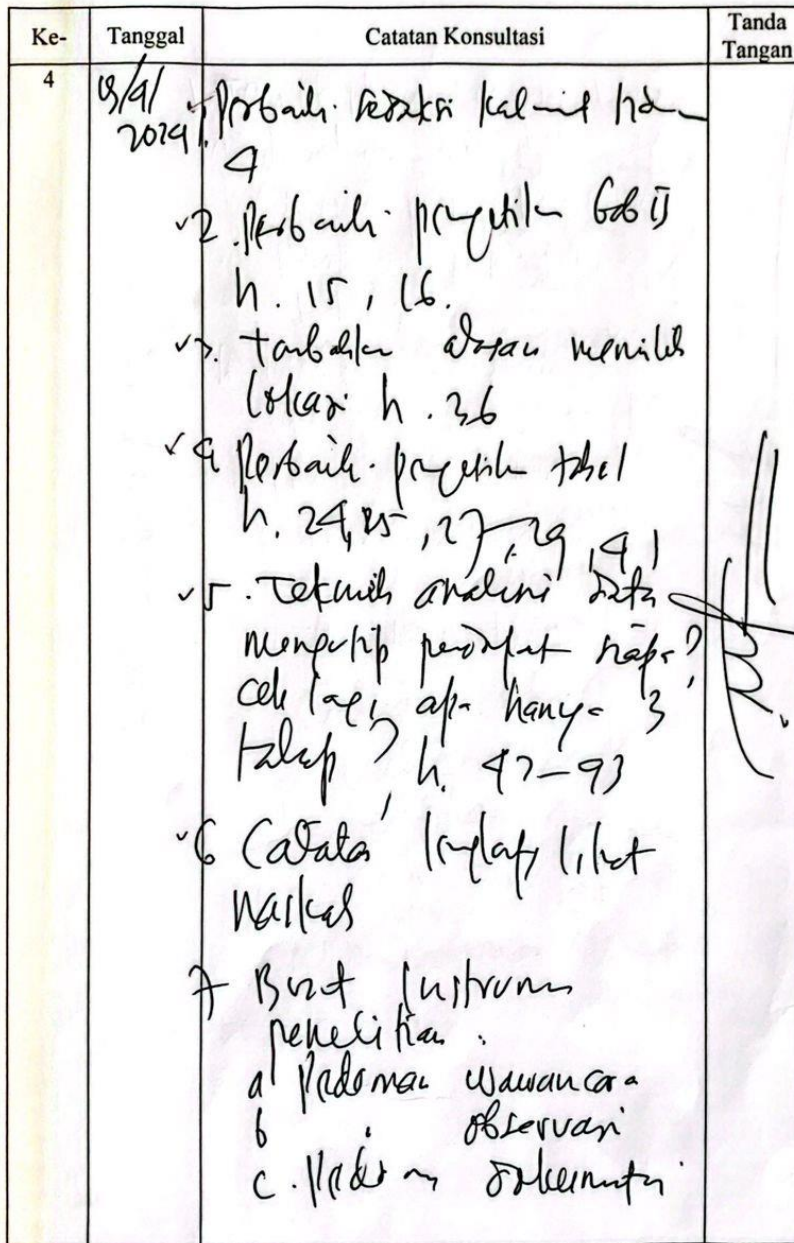 Ke- Tanggal Catatan Konsultasi Tanda Tangan
4
2024 1. Perbaiki redaksi kalimat
4
2. Perbaiki pengetikan bab II
h. 15, 16.
3. tambahkan alasan memilih
lokasi h. 36
4 Perbaiki pengetikan tabel
h. 24, 25, 27, 29, 41
5. Teknik analisis data
mengutip pendapat siapa?
cek lagi, apa hanya 3
tahap? h.
6 Catatan lengkap, lihat
naskah
7 Buat Instrumen
penelitian.
a Pedoman wawancara
b observasi
c. Pedoman dokumentasi